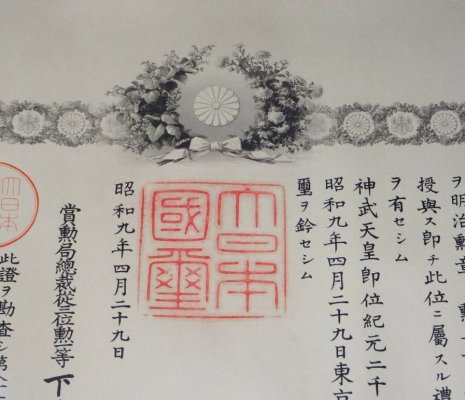 授與ス即チ此位ニ屬スル禮
ヲ有セシム
神武天皇即位紀元二千
昭和九年四月二十九日東京
璽ヲ鈐セシム
大日本
國璽
昭和九年四月二十九日
賞勳局總裁從三位勳一等下
此證ヲ勘査シ第八
大日本